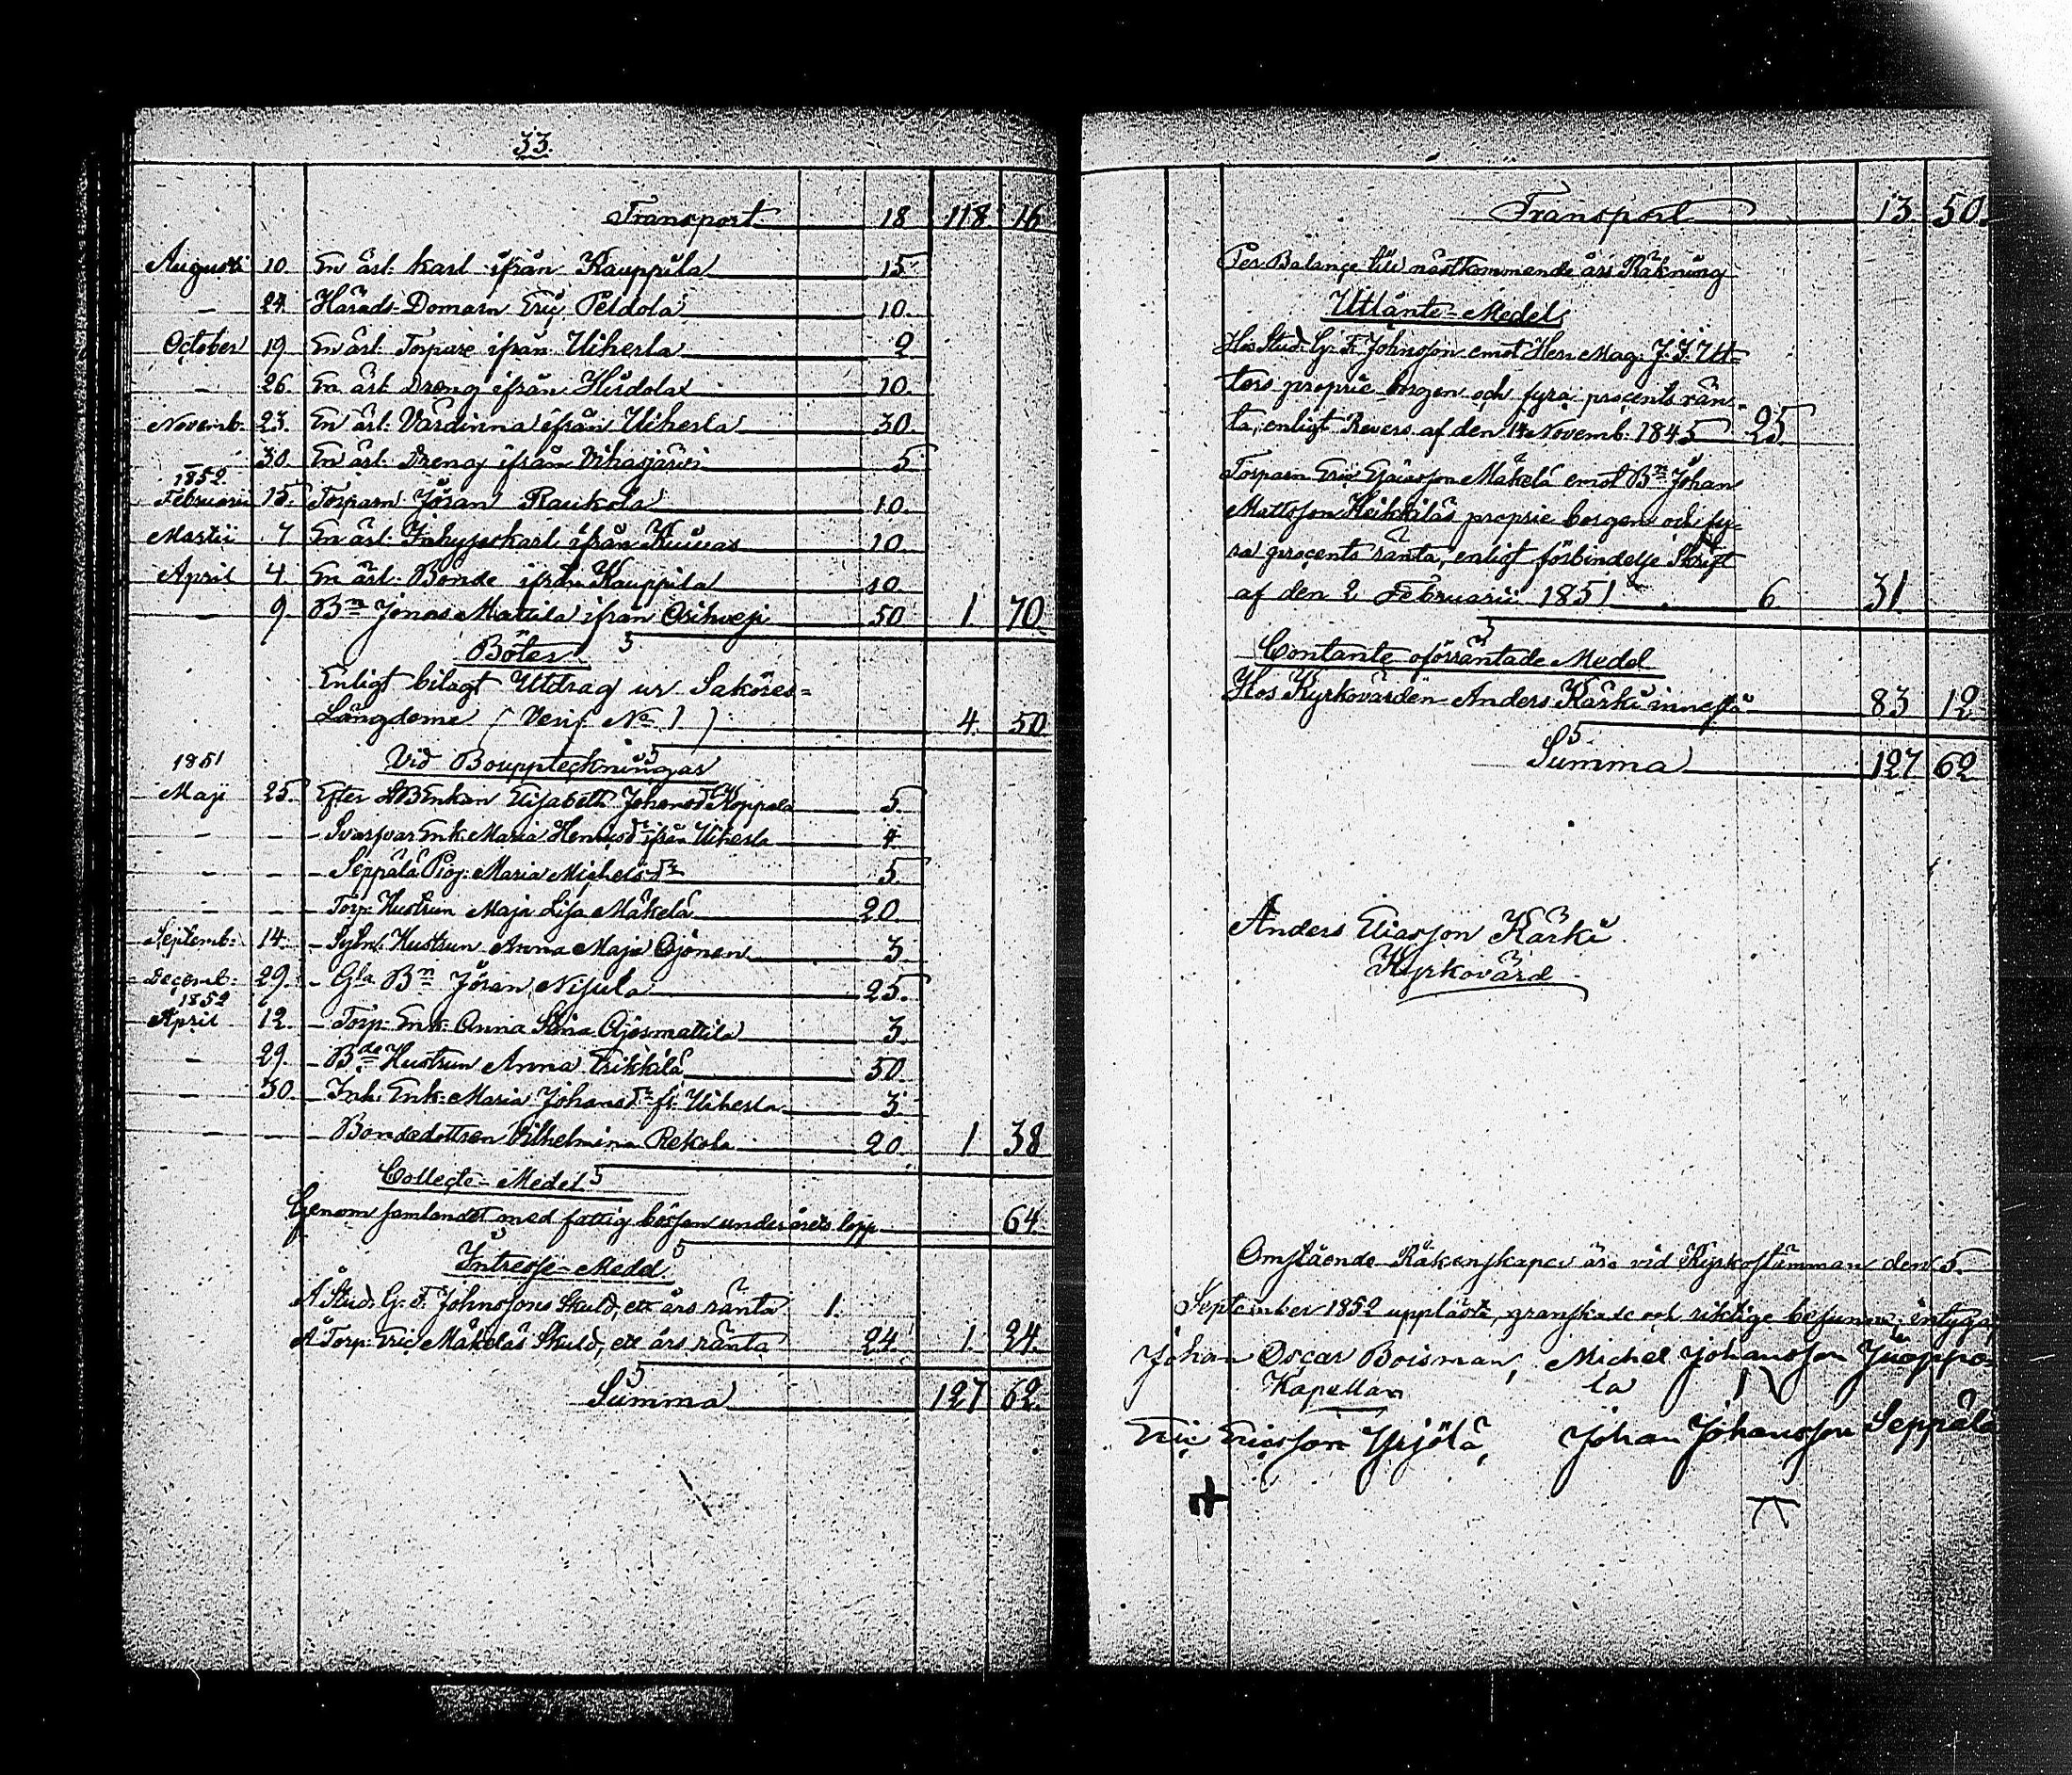 33.
Transport 18 118 16
Augusti 10. En ärl. karl ifrån Kauppila 15
— 24 Härads-Domarn Eric Peldola 10.
October 19 En ärl. Torpare ifrån Uiherla 2
— 26. En ärl. Dreng ifrån Hirdola 10.
Novemb. 23. En ärl. Värdinna ifrån Uiherla 30.
— 30. En ärl. Dreng ifrån Vihasjärvi 5
1852
Februarii 15. Torparn Jöran Raukola 10.
Martii 7 En ärl. Inhyseskarl ifrån 10.
April 4. En ärl. Bonde ifrån Kauppila 10.
— 9. Bn Jonas Mattila ifrån Orihveji 50 1 70
Böter
Enligt bilagt Utdrag ur Saköres=
Längderne (Verif. No 1) 4. 50
Vid Bouppteckningar
1851
Maji 25. Efter Enkan Elisabeth Johansdr Koppala 5.
— — — Svarfvar Enk. Maria Henricsdr ifrån Uiherla 4
— — — Seppälä Pig. Maria Michelsdr 5.
— — — Torp. Hustrun Maja Lisa Mäkelä 20.
Septemb. 14. — Sytn. Hustrun Anna Maja Ojonen 3
Decemb. 29. — Gla Bn Jöran Nipula 25.
1852
April 12. — Torp. Enk. Anna Stina Ojosmattila 3.
— 29. — Bde Hustrun Anna Erikkilä 50.
— 30. — Inh. Enk. Maria Johansdr fr. Uiherla 3
— — — Bondedottren Vilhelmina Rekola 20. 1 38
Collecte-Medel.
Genom samlandet med fattig bössan under årets lopp 64.
Intresse-Medel.
Å Stud. G. F. Johnssons Skuld, ett års ränta 1.
Å Torp. Eric Mäkeläs Skuld, ett års ränta 24. 1. 24.
Summa 127 62.
Transport 13 50.
Per Balançe till nästkommande års Räkning
Utlånte-Medel
Hos Stud. G. F. Johnsson emot Herr Mag. J. J. Ut=
ters proprie borgen och fyra procents rän=
ta, enligt Revers af den 14 Novemb. 1845 25.
Torparn Eric Mäkelä emot Bn Johan
Mattsson Heikkiläs proprie borgen och fy=
ra procents ränta, enligt förbindelse Skrift
af den 2 Februarii 1851 6. 31
Contante oförräntade Medel
Hos Kyrkovärden Anders Kärki innestå 83 12
Summa 127 62
Anders Eliasson Kärki
Kyrkovärd
Omstående Räkenskaper äro vid Kyrkostämman den 5.
September 1852 upplästa, granskade och riktige befunne, intyga,
Johan Oscar Boisman, Michel Johansson Juoppo
Kapellan la
Eric Ericsson Yrjölä, Johan Johansson Seppälä